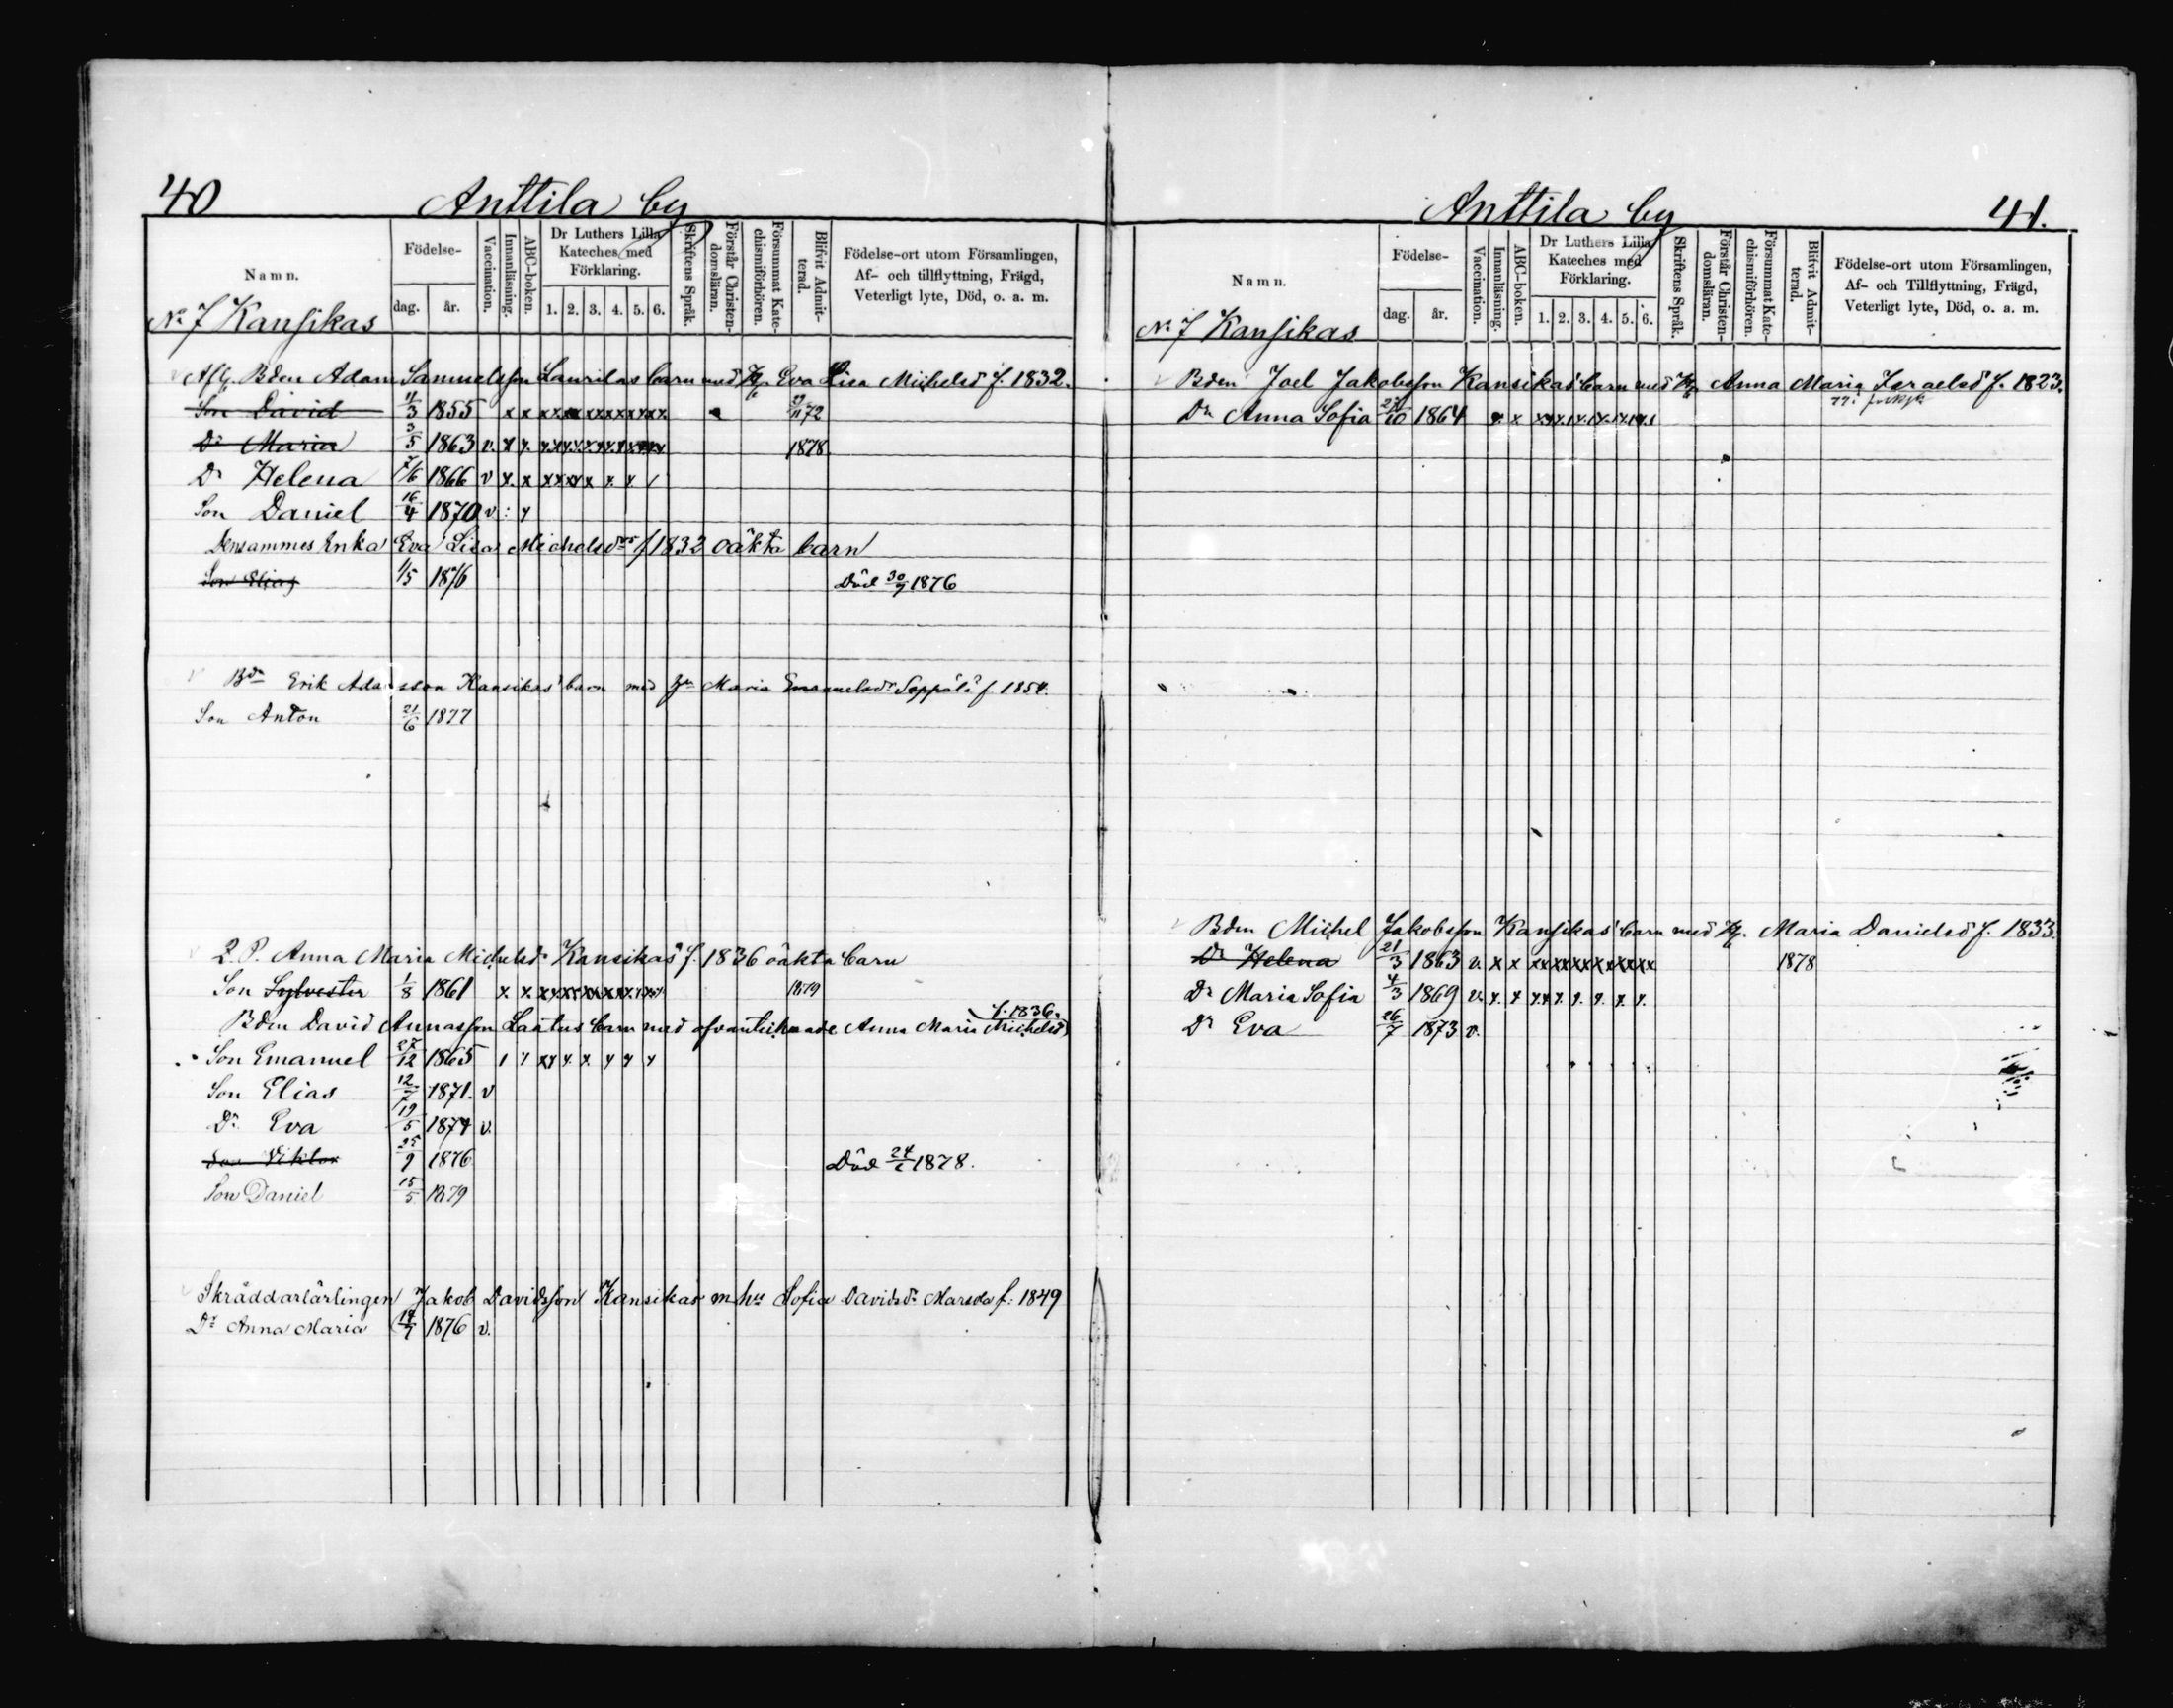 40 Anttila by
Namn. Födelse- dag. år. Vaccination. Innanläsning. ABC-boken. Dr Luthers Lilla Kateches med Förklaring. 1. 2. 3. 4. 5. 6. Skriftens Språk. Förstår Christendomsläran. Försummat Katechismiförhören. Blifvit Admitterad. Födelse-ort utom Församlingen, Af- och tillflyttning, Frägd, Veterligt lyte, Död, o. a. m.
No 7 Kansikas
Afl. Bden Adam Samuelsson Laurilas barn med H. Eva Lisa Michelsd f. 1832.
Son David 11/3 1855 x x 29/11 72
Dr Maria 3/5 1863 v. x x. 1878
Dr Helena 7/6 1866 v x. x
Son Daniel 16/4 1870 v : x
Densammes Enka Eva Lisa Michelsdrs f 1832 oäkta barn
Son Elias 1/5 1876 Död 30/9 1876
Bdn Erik Adamsson Kansikas' barn med Maria Emanuelsdr Seppälä f. 1854.
Son Anton 21/6 1877
Q. P. Anna Maria Michelsdr Kansikas f. 1836 oäkta barn
Son Sylvester 1/8 1861 x x. 1879
Bden David Annasson Laatus barn med ofvanteknade Anna Maria Michelsd f. 1836.
Son Emanuel 27/12 1865
Son Elias 12/7 1871. v
Dr Eva 19/5 1874 v.
Son Viktor 25/9 1876 Död 24/6 1878.
Son Daniel 15/5 1879
Skräddarlärlingen Jakob Davidsson Kansikas m hu Sofia Davidsdr Marsda f: 1849
Dr Anna Maria 1876 v.
Anttila by 41.
Namn. Födelse- dag. år. Vaccination. Innanläsning. ABC-boken. Dr Luthers Lilla Kateches med Förklaring. 1. 2. 3. 4. 5. 6. Skriftens Språk. Förstår Christendomsläran. Försummat Katechismiförhören. Blifvit Admitterad. Födelse-ort utom Församlingen, Af- och Tillflyttning, Frägd, Veterligt lyte, Död, o. a. m.
No 7 Kansikas
Bden Joel Jakobsson Kansikas' barn med H. Anna Maria Israelsd f. 1823.
Dr Anna Sofia 27/10 1864
Bden Michel Jakobsson Kansikas' barn med H. Maria Danielsd f. 1833.
Dr Helena 21/3 1863 v. x x 1878
Dr Maria Sofia 4/3 1869 v. x. x
Dr Eva 26/7 1873 v.